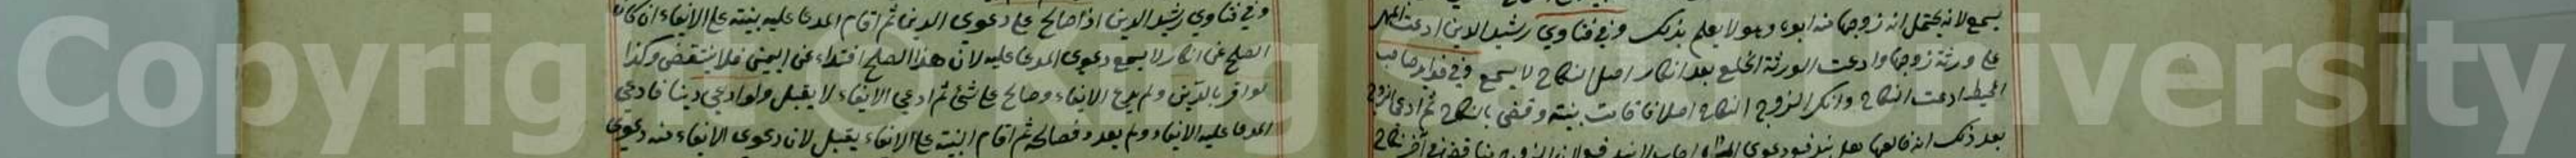 يسمع لانه يحتمل انه زوجها منه ابوه وهو لا يعلم بذلك وفي فتاوي رشيد الدين ادعت المهر
على ورثة زوجها وادعت الورثة الخلع بعد انكار اصل النكاح لا يسمع وفي فوايد صاحب
المحيط ادعت النكاح وانكر الزوج النكاح اصلا فاقامت بينته وقضى بالنكاح ثم ادعى الزوج
بعد ذلك انه خالعها هل
وفي فتاوي رشيد الدين اذا صالح على دعوى الدين ثم اقام المدعا عليه بينته على الايفاء ان كان
الصلح عن انكار لا يسمع دعوى المدعا عليه لان هذا الصلح افتداء عن اليمين فلا ينتقض وكذا
لو اقر بالدين ولم يدع الايفاء وصالح على شئ ثم ادعى الايفاء لا يقبل ولو ادعى دينا فادعى
المدعا عليه الايفاء ولم بعد فصالحه ثم اقام البينة على الايفاء يقبل لان دعوى الايفاء منه دعوى
Copyrig
versity